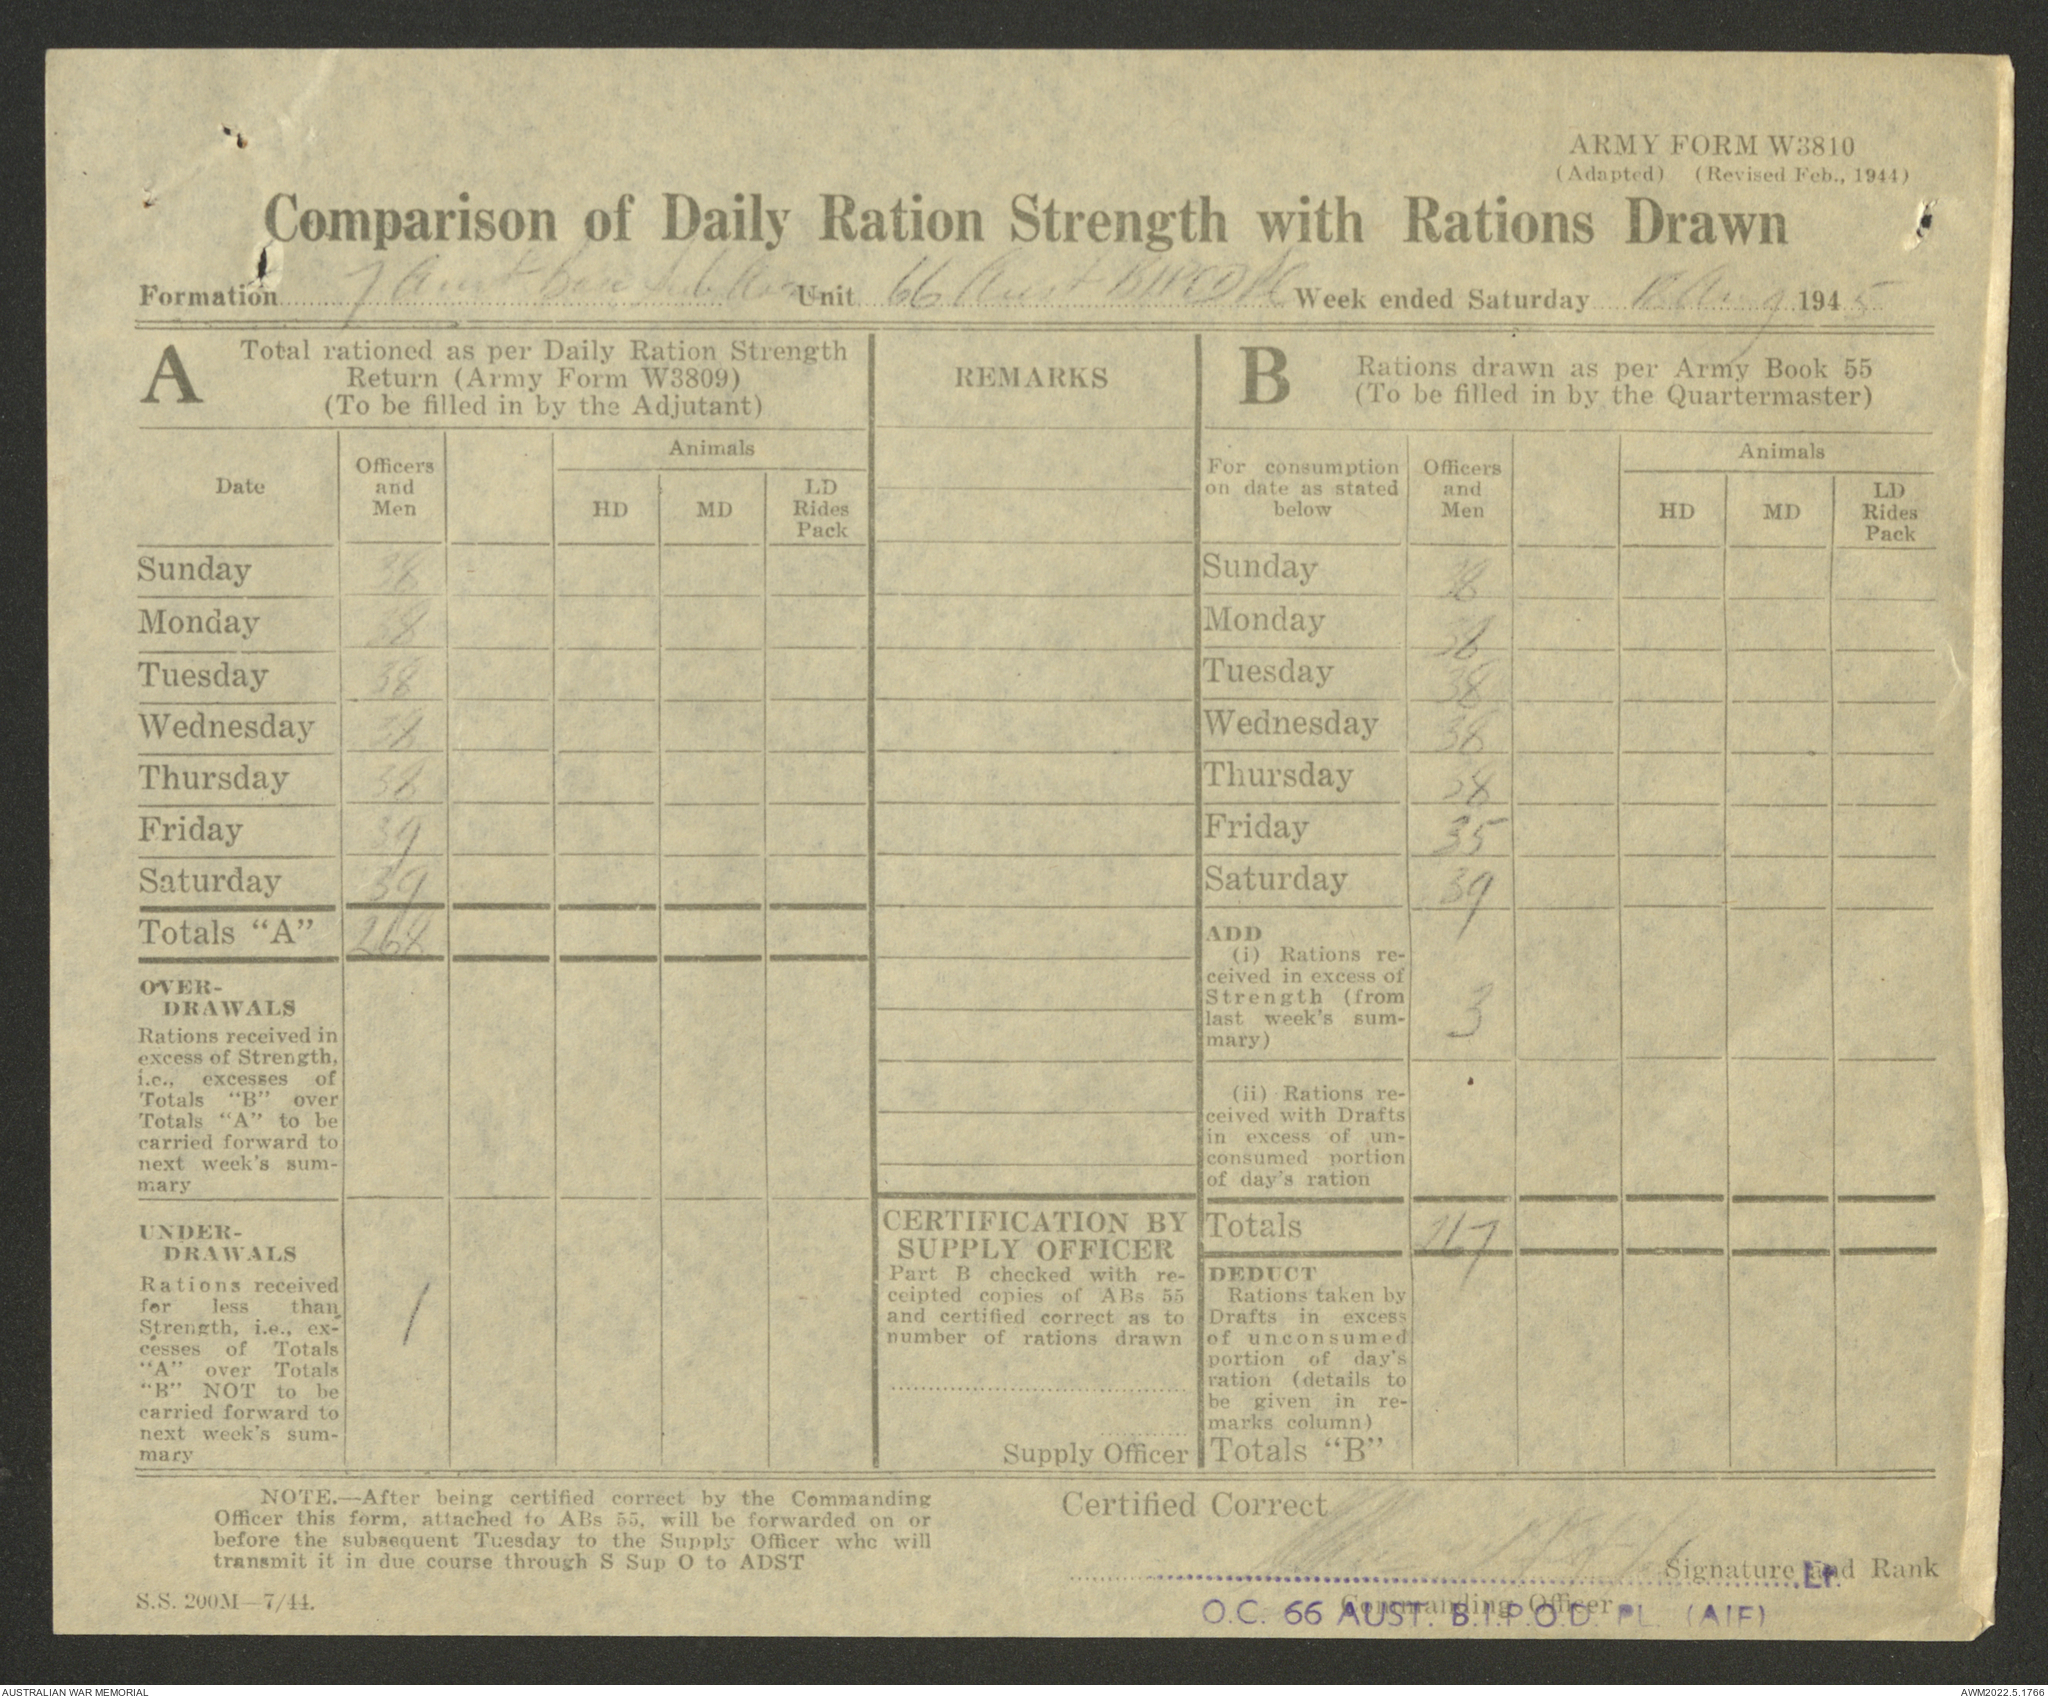 ARMY FORM W3810
(Adapted) (Revised Feb., 1944)
Comparison of Daily Ration Strength with Rations Drawn
Formation 7 Aust Base Sub Area Unit 66 Aust BIPOD Pl Week ended Saturday Aug 1945
A Total rationed as per Daily Ration Strength
Return (Army Form W3809)
(To be filled in by the Adjutant)
Date
Officers
and
Men
Animals
HD
MD
LD
Rides
Pack
Sunday 38
Monday 38
Tuesday 38
Wednesday 38
Thursday 38
Friday 39
Saturday 39
Totals "A" 268
OVER-
DRAWALS
Rations received in
excess of Strength,
i.e., excesses of
Totals "B" over
Totals "A" to be
carried forward to
next week's sum-
mary
UNDER-
DRAWALS
Rations received
for less than
Strength, i.e., ex-
cesses of Totals
"A" over Totals
"B" NOT to be
carried forward to
next week's sum-
mary
1
REMARKS
CERTIFICATION BY
SUPPLY OFFICER
Part B checked with re-
ceipted copies of ABs 55
and certified correct as to
number of rations drawn
Supply Officer
B Rations drawn as per Army Book 55
(To be filled in by the Quartermaster)
For consumption
on date as stated
below
Officers
and
Men
Animals
HD
MD
LD
Rides
Pack
Sunday 38
Monday 38
Tuesday 38
Wednesday 38
Thursday 38
Friday 35
Saturday 39
ADD
(i) Rations re-
ceived in excess of
Strength (from
last week's sum-
mary)
3
(ii) Rations re-
ceived with Drafts
in excess of un-
consumed portion
of day's ration
Totals 267
DEDUCT
Rations taken by
Drafts in excess
of unconsumed
portion of day's
ration (details to
be given in re-
marks column)
Totals "B"
NOTE.—After being certified correct by the Commanding
Officer this form, attached to ABs 55, will be forwarded on or
before the subsequent Tuesday to the Supply Officer who will
transmit it in due course through S Sup O to ADST
S.S. 200M—7/44.
Certified Correct
Signature and Rank
Lt.
Commanding Officer
O.C. 66 AUST. B.I.P.O.D. PL. (AIF)
AUSTRALIAN WAR MEMORIAL
AWM2022.5.1766